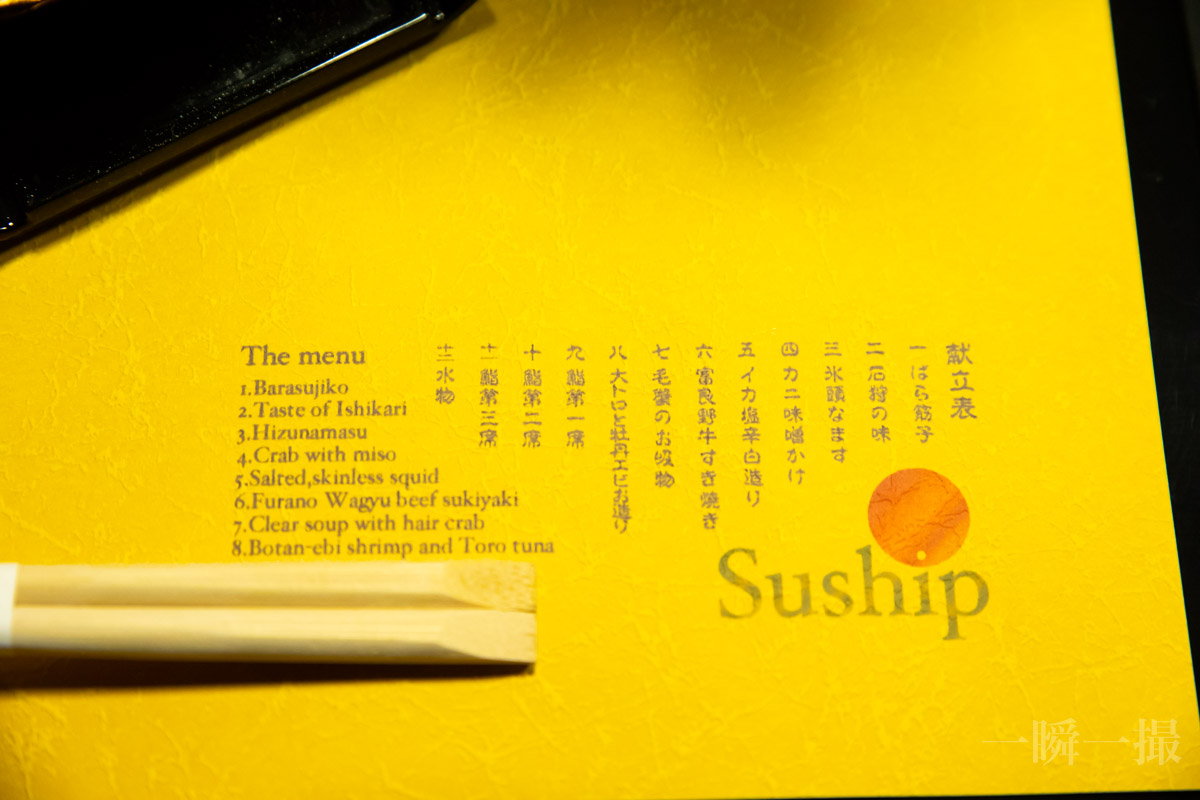 献立表
一 ばら筋子
二 石狩の味
三 氷頭なます
四 カニ味噌かけ
五 イカ塩辛白造り
六 富良野牛すき焼き
七 毛蟹のお吸物
八 大トロと牡丹エビお造り
九 鮨第一席
十 鮨第二席
十一 鮨第三席
十二 水物
The menu
1.Barasujiko
2.Taste of Ishikari
3.Hizunamasu
4.Crab with miso
5.Salted,skinless squid
6.Furano Wagyu beef sukiyaki
7.Clear soup with hair crab
8.Botan-ebi shrimp and Toro tuna
Suship
一瞬一撮